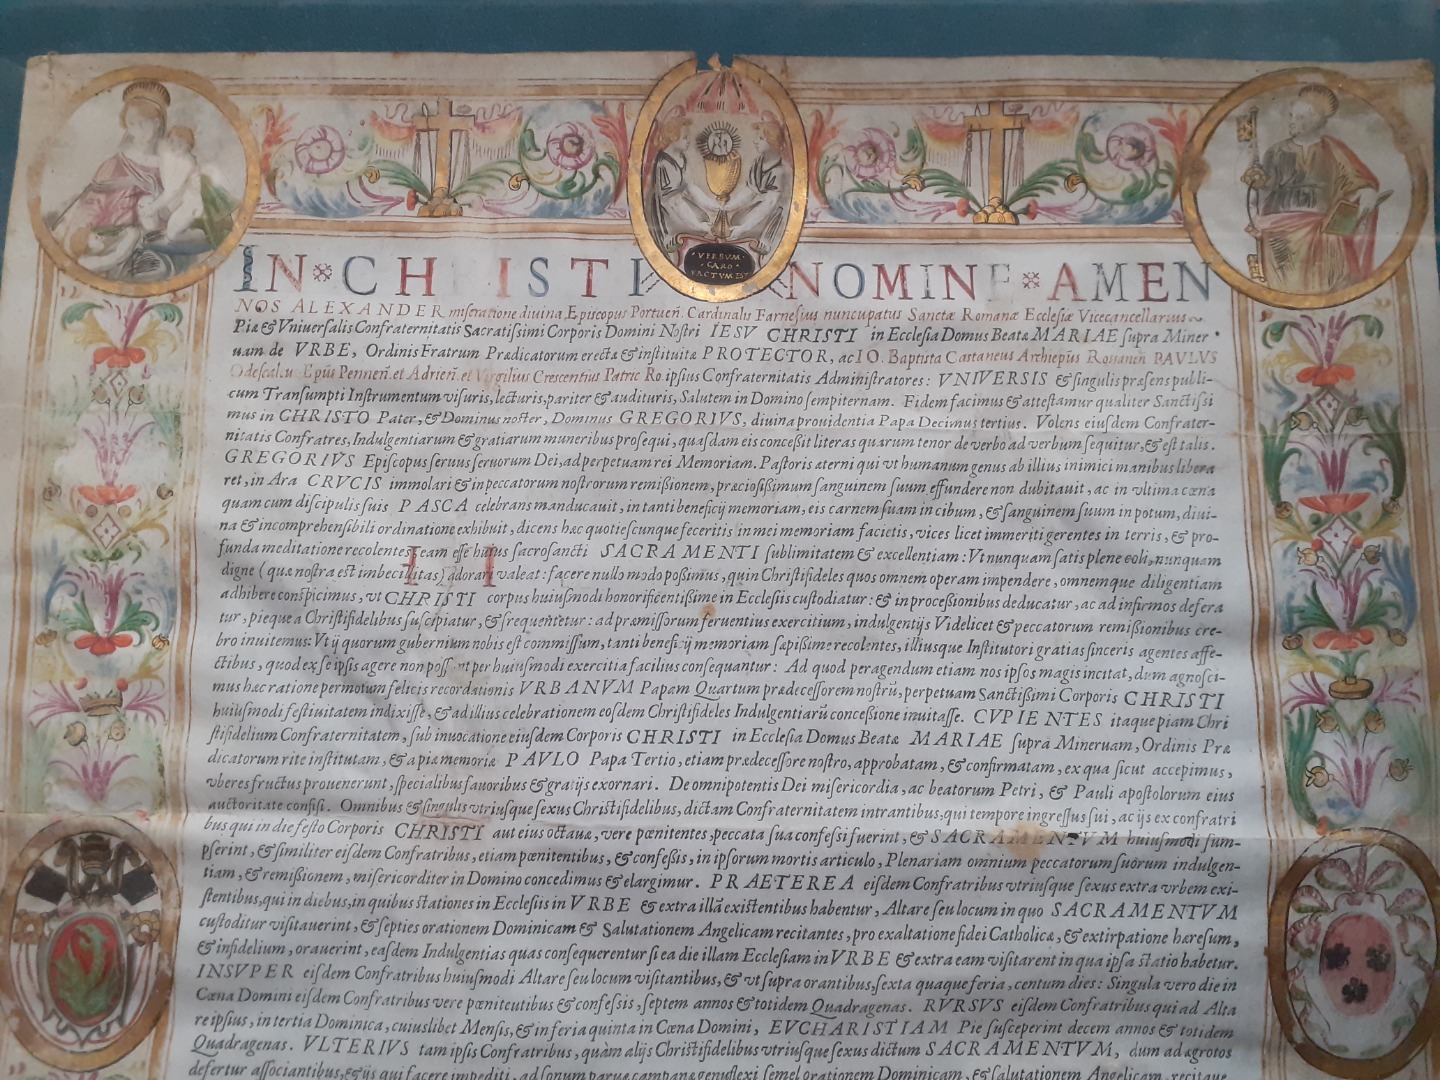 VERBVM
CARO
FACTVM EST
IN CHRISTI NOMINE AMEN
NOS ALEXANDER miseratione diuina Episcopus Portueñ. Cardinalis Farnesius nuncupatus Sanctæ Romanæ Ecclesiæ Vicecancellarius
Piæ & Vniuersalis Confraternitatis Sacratissimi Corporis Domini Nostri IESV CHRISTI in Ecclesia Domus Beatæ MARIAE supra Miner
uam de VRBE, Ordinis Fratrum Prædicatorum erectæ & institutæ PROTECTOR, ac IO. Baptista Castaneus Archiepũs Rossaneñ PAVLVS
Odescal. Epũs Penneñ. et Adrieñ. et Virgilius Crescentius Patric Ro ipsius Confraternitatis Administratores: VNIVERSIS & singulis præsens publi-
cum Transumpti Instrumentum visuris, lecturis, pariter & audituris, Salutem in Domino sempiternam. Fidem facimus & attestamur qualiter Sanctissi
mus in CHRISTO Pater, & Dominus noster, Dominus GREGORIVS, diuina prouidentia Papa Decimus tertius. Volens eiusdem Confrater-
nitatis Confratres, Indulgentiarum & gratiarum muneribus prosequi, quasdam eis concessit literas quarum tenor de verbo ad verbum sequitur, & est talis.
GREGORIVS Episcopus seruus seruorum Dei, ad perpetuam rei Memoriam. Pastoris æterni qui vt humanum genus ab illius inimici manibus libera
ret, in Ara CRVCIS immolari & in peccatorum nostrorum remissionem, præciosissimum sanguinem suum effundere non dubitauit, ac in vltima cœna
quam cum discipulis suis PASCA celebrans manducauit, in tanti beneficij memoriam, eis carnem suam in cibum, & sanguinem suum in potum, diui-
na & incomprehensibili ordinatione exhibuit, dicens hæc quotiescunque feceritis in mei memoriam facietis, vices licet immeriti gerentes in terris, & pro-
funda meditatione recolentes eam esse huius sacrosancti SACRAMENTI sublimitatem & excellentiam: Vt nunquam satis plene coli, nunquam
digne (quæ nostra est imbecillitas) adorari valeat: facere nullo modo possimus, quin Christifideles quos omnem operam impendere, omnemque diligentiam
adhibere conspicimus, vt CHRISTI corpus huiusmodi honorificentissime in Ecclesiis custodiatur: & in processionibus deducatur, ac ad infirmos defera
tur, pieque a Christifidelibus suscipiatur, & frequentetur: ad præmissorum feruentius exercitium, indulgentijs Videlicet & peccatorum remissionibus cre-
bro inuitemus: Vt ij quorum gubernium nobis est commissum, tanti beneficij memoriam sæpissime recolentes, illiusque Institutori gratias sinceris agentes affe-
ctibus, quod ex se ipsis agere non possent per huiusmodi exercitia facilius consequantur: Ad quod peragendum etiam nos ipsos magis incitat, dum agnosci-
mus hac ratione permotum felicis recordationis VRBANVM Papam Quartum prædecessorem nostrũ, perpetuam Sanctissimi Corporis CHRISTI
huiusmodi festiuitatem indixisse, & ad illius celebrationem eosdem Christifideles Indulgentiarũ concessione inuitasse. CVPIENTES itaque piam Chri
stifidelium Confraternitatem, sub inuocatione eiusdem Corporis CHRISTI in Ecclesia Domus Beatæ MARIAE suprà Mineruam, Ordinis Præ
dicatorum rite institutam, & a piæ memoriæ PAVLO Papa Tertio, etiam prædecessore nostro, approbatam, & confirmatam, ex qua sicut accepimus,
vberes fructus prouenerunt, specialibus fauoribus & gratijs exornari. De omnipotentis Dei misericordia, ac beatorum Petri, & Pauli apostolorum eius
auctoritate confisi. Omnibus & singulis vtriusque sexus Christifidelibus, dictam Confraternitatem intrantibus, qui tempore ingressus sui, ac ijs ex confratri
bus qui in die festo Corporis CHRISTI aut eius octaua, vere pœnitentes, peccata sua confessi fuerint, & SACRAMENTVM huiusmodi sum-
pserint, & similiter eisdem Confratribus, etiam pœnitentibus, & confessis, in ipsorum mortis articulo, Plenariam omnium peccatorum suorum indulgen-
tiam, & remissionem, misericorditer in Domino concedimus & elargimur. PRAETEREA eisdem Confratribus vtriusque sexus extra vrbem exi-
stentibus, qui in diebus, in quibus stationes in Ecclesiis in VRBE & extra illã existentibus habentur, Altare seu locum in quo SACRAMENTVM
custoditur visitauerint, & septies orationem Dominicam & Salutationem Angelicam recitantes, pro exaltatione fidei Catholicæ, & extirpatione hæresum,
& infidelium, orauerint, easdem Indulgentias quas consequerentur si ea die illam Ecclesiam in VRBE & extra eam visitarent in qua ipsa statio habetur.
INSVPER eisdem Confratribus huiusmodi Altare seu locum visitantibus, & vt supra orantibus, sexta quaque feria, centum dies: Singula vero die in
Cœna Domini eisdem Confratribus vere pœnitentibus & confessis, septem annos & totidem Quadragenas. RVRSVS eisdem Confratribus qui ad Alta
re ipsius, in tertia Dominica, cuiuslibet Mensis, & in feria quinta in Cœna Domini, EVCHARISTIAM Pie susceperint decem annos & totidem
Quadragenas. VLTERIVS tam ipsis Confratribus, quàm alijs Christifidelibus vtriusque sexus dictum SACRAMENTVM, dum ad ægrotos
defertur associantibus, & ijs qui facere impediti, ad sonum paruæ campanæ genuflexi semel orationem Dominicam, & salutationem Angelicam, recitan